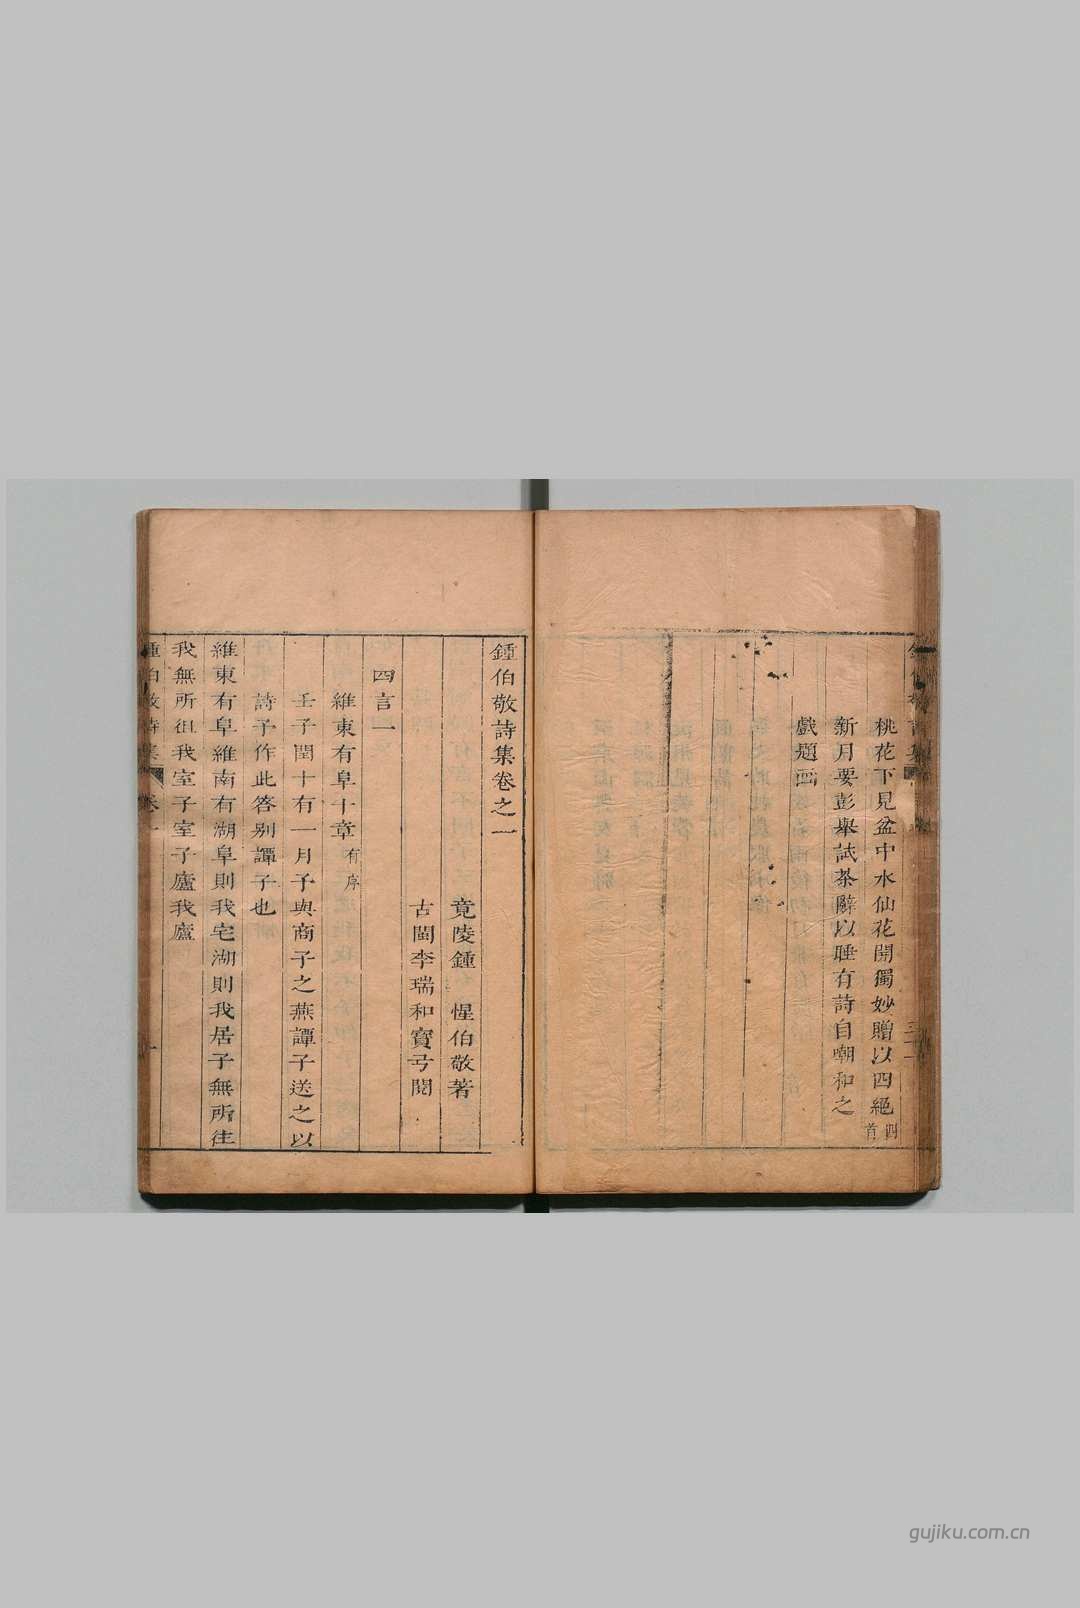 桃花下見盆中水仙花開獨妙贈以四絕四首
新月要彭舉試茶辭以睡有詩自嘲和之
戲題画
鍾伯敬詩集卷之一
竟陵鍾惺伯敬著
古閩李瑞和寶弓閱
四言一
維東有阜十章有序
壬子閏十有一月予與商子之燕譚子送之以
詩予作此答別譚子也
維東有阜維南有湖阜則我宅湖則我居子無所往
我無所徂我室子室子廬我廬
鍾伯敬詩集 卷一 一
gujiku.com.cn